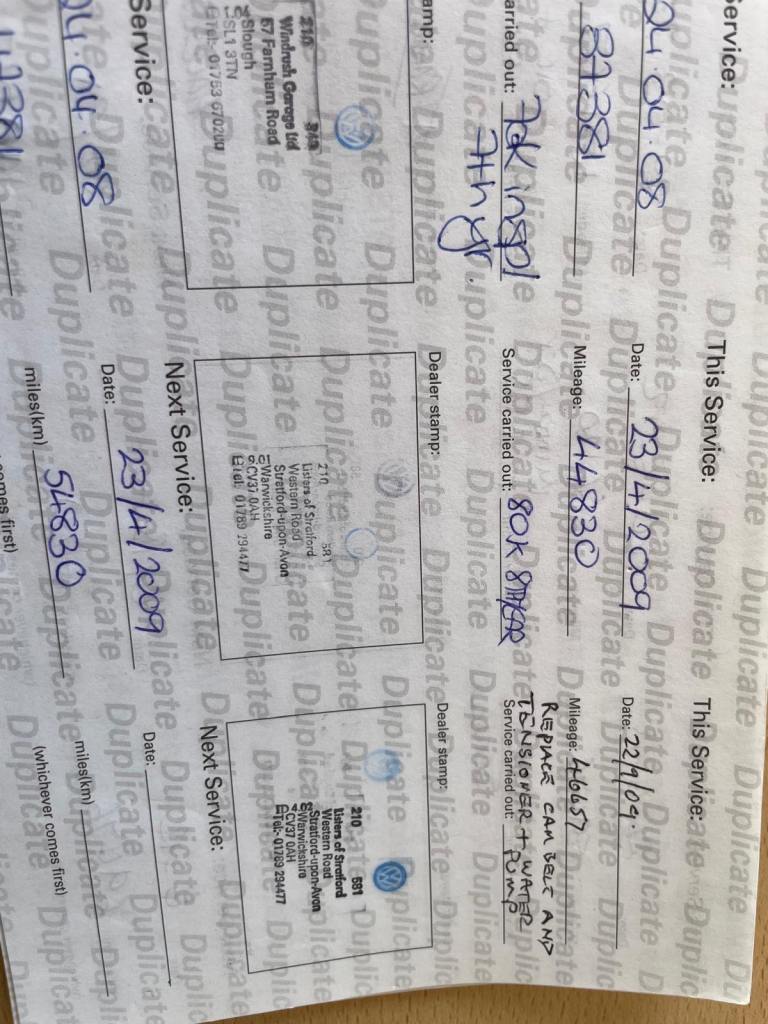 Service:
24.04.08
37381
arried out: 70K inspl
7th yr.
amp:
210 343
Windrush Garage Ltd
57 Farnham Road
Slough
SL1 3TN
Tel:- 01753 670200
Service:
24.04.08
47381
This Service:
Date: 23/4/2009
Mileage: 44830
Service carried out: 80K 8TH YEAR
Dealer stamp:
210 581
Listers of Stratford
Western Road
Stratford-upon-Avon
Warwickshire
CV37 0AH
Tel: 01789 294477
Next Service:
Date: 23/4/2009
miles(km) 54830
omes first)
This Service:
Date: 22/9/09.
Mileage: 46657
REPLACE CAM BELT AND
TENSIONER + WATER
Service carried out: PUMP
Dealer stamp:
210 581
Listers of Stratford
Western Road
Stratford-upon-Avon
Warwickshire
CV37 0AH
Tel:- 01789 294477
Next Service:
Date:
miles(km)
(whichever comes first)
Duplicate Duplicate Duplicate Duplicate